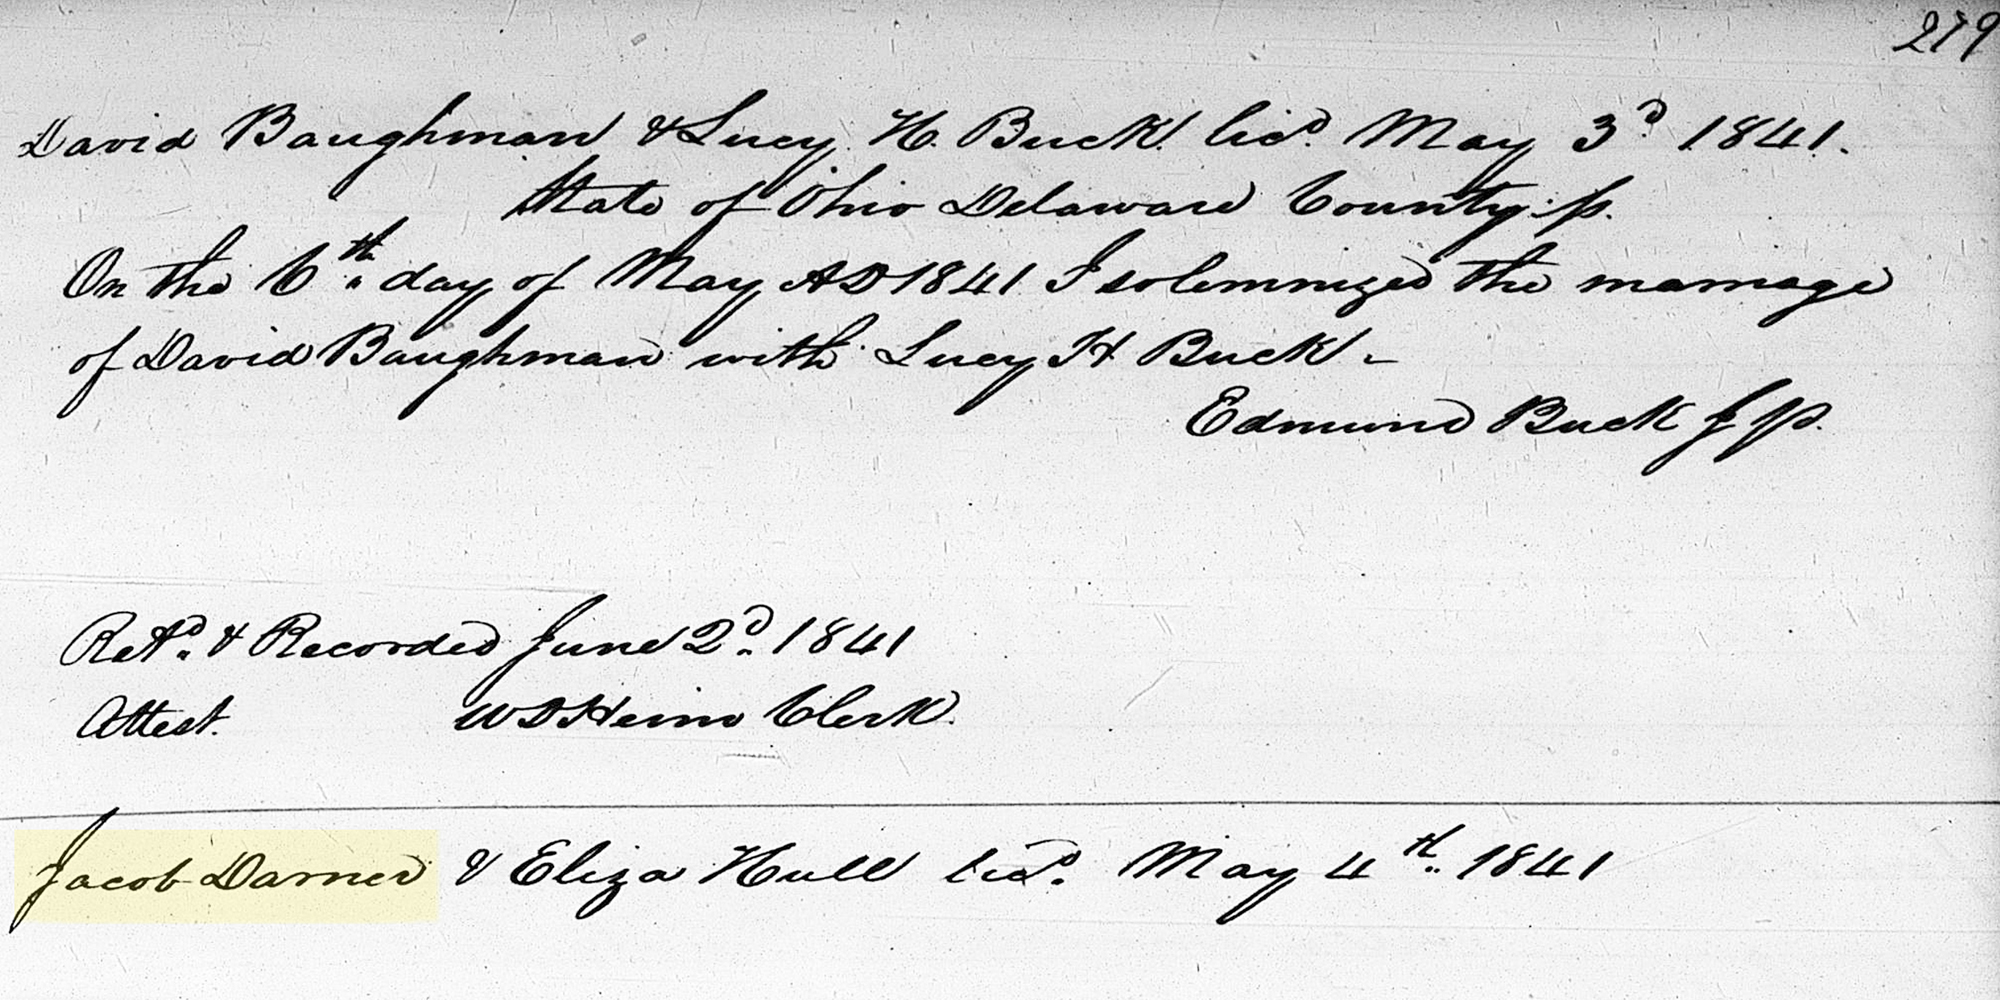 279
David Baughman & Lucy H. Buck licd. May 3d 1841.
State of Ohio Delaware County ss.
On the 6th day of May AD 1841 I solemnized the marriage
of David Baughman with Lucy H Buck -
Edmund Buck J P.
Retd. & Recorded June 2d. 1841
Attest. W D Heim Clerk.
Jacob Darner & Eliza Hull licd. May 4th. 1841